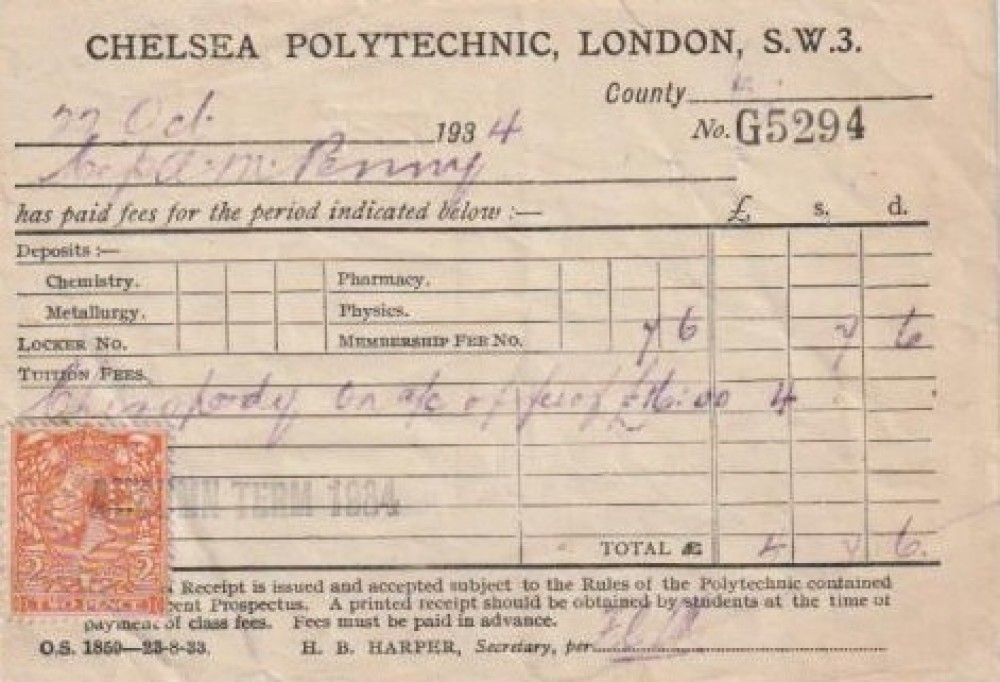 CHELSEA POLYTECHNIC, LONDON, S.W.3.
County
22 Oct. 1934 No. G5294
A. M. Penny
has paid fees for the period indicated below :— £ s. d.
Deposits :—
Chemistry. Pharmacy.
Metallurgy. Physics.
LOCKER NO. MEMBERSHIP FEE NO. 7 6 7 6
TUITION FEES.
Chiropody On a/c of fee of £16:00 4
AUTUMN TERM 1934
TOTAL £ 4 7 6.
2 2
TWO PENCE
Receipt is issued and accepted subject to the Rules of the Polytechnic contained
Prospectus. A printed receipt should be obtained by students at the time of
payment of class fees. Fees must be paid in advance.
O.S. 1850—23-8-33. H. B. HARPER, Secretary, per